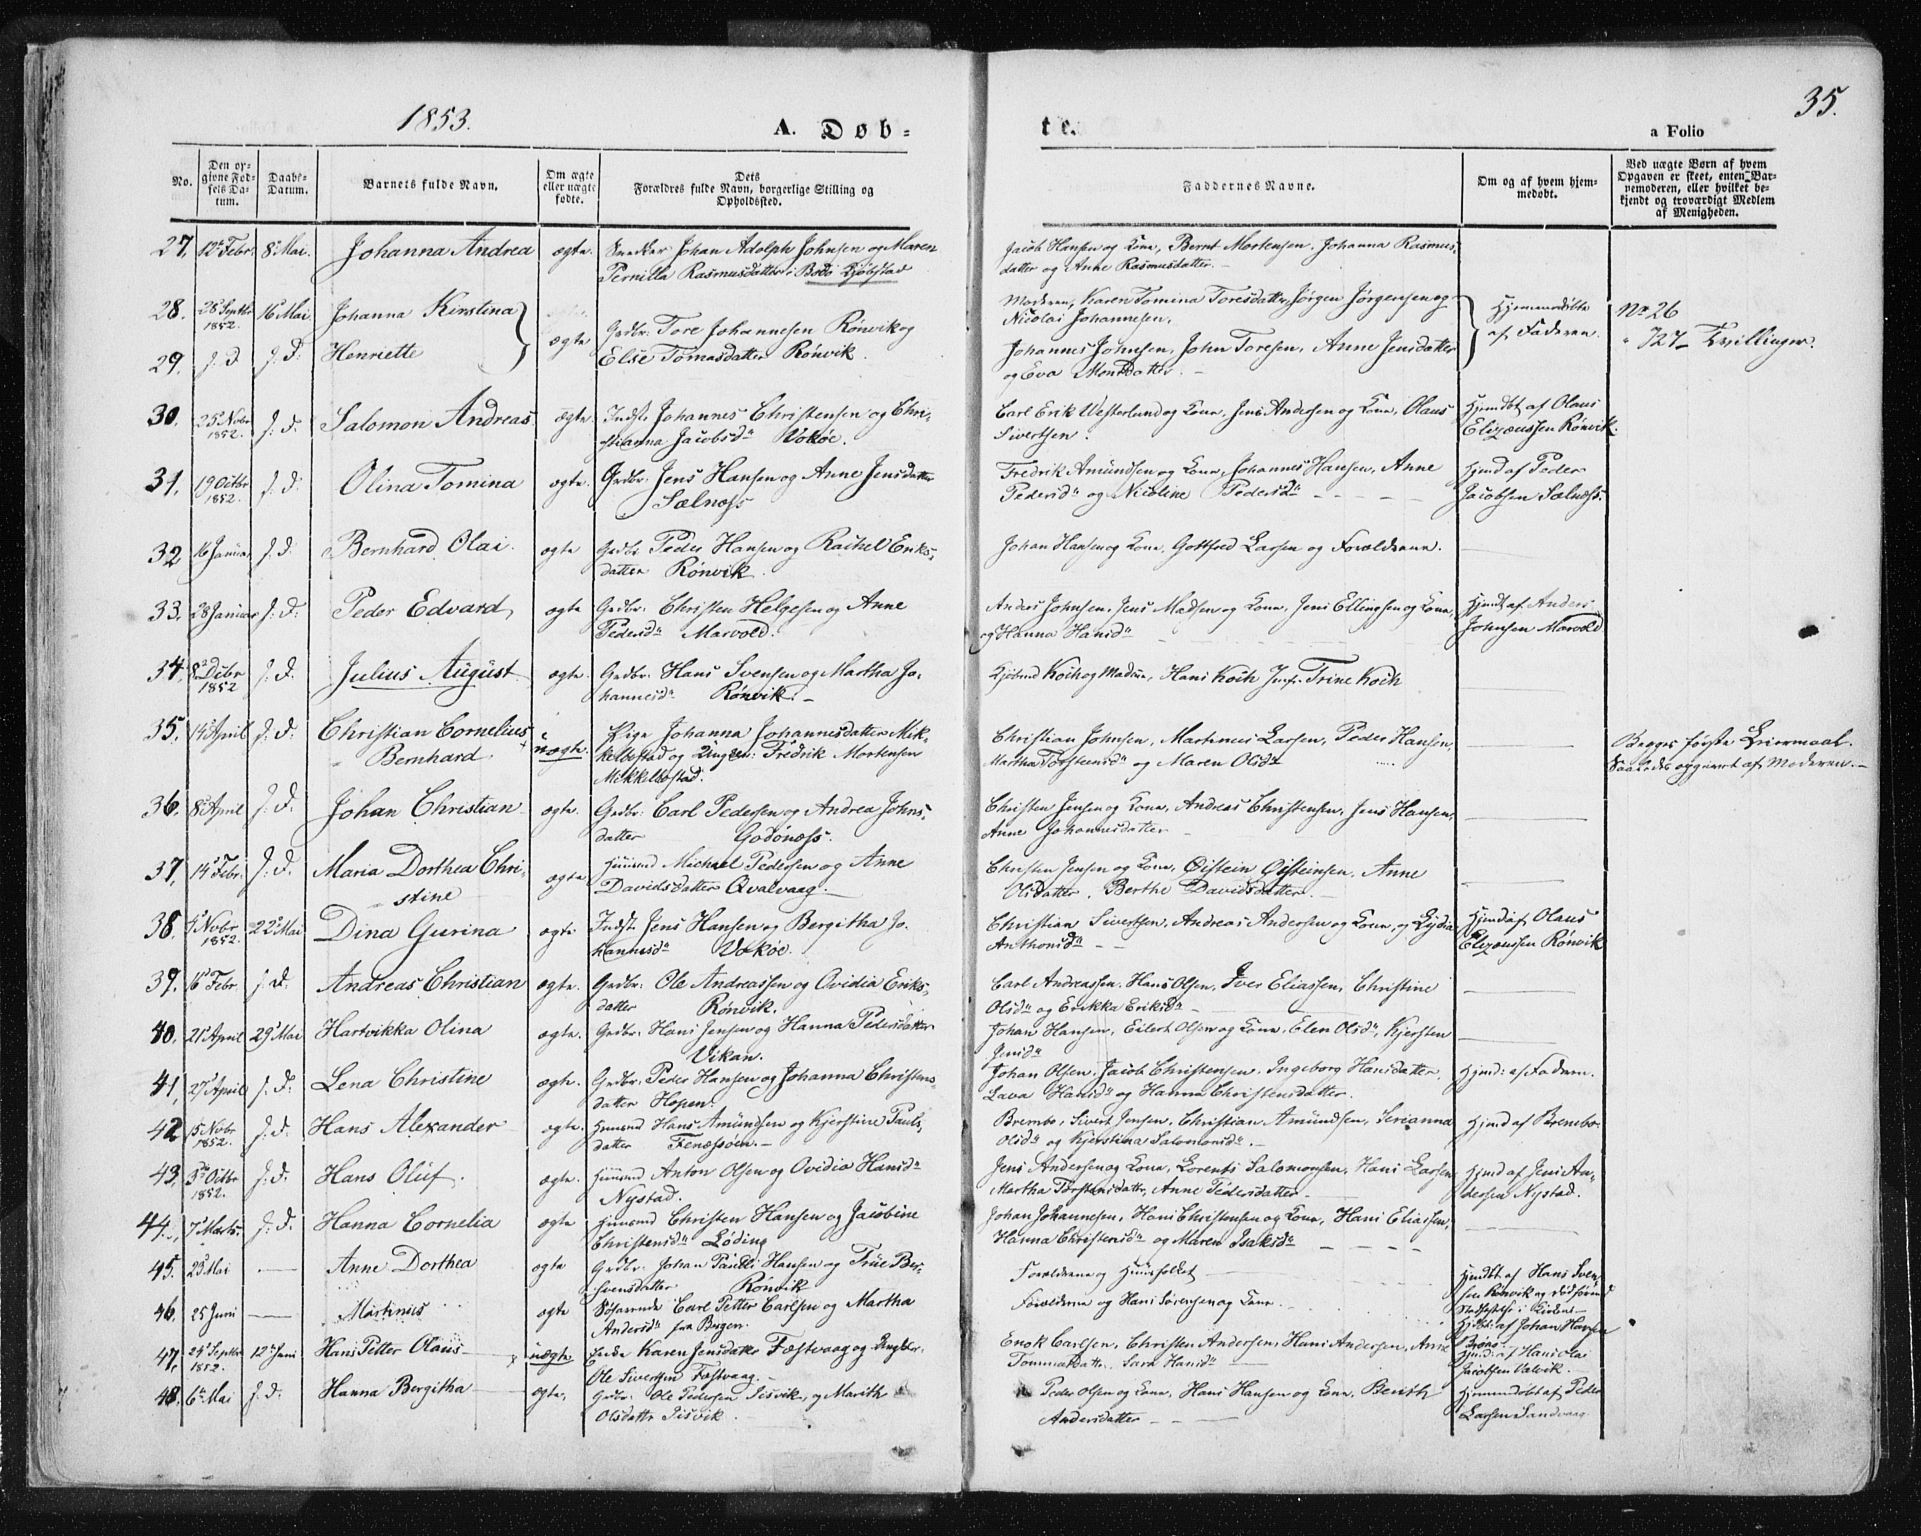 1853.
35.
A. Døb-
te.
a Folio
No.
Den opgivne Fødsels Datum.
Daabs-Datum.
Barnets fulde Navn.
Om ægte eller uægte fødte.
Dets Forældres fulde Navn, borgerlige Stilling og Opholdssted.
Faddernes Navne.
Om og af hvem hjemmedøbt.
Ved uægte Børn af hvem Opgaven er skeet, enten Barnemoderen, eller hvilket bekjendt og troværdigt Medlem af Menigheden.
27. 12te Febr. 8de Mai. Johanna Andrea ægte. Snedker Johan Adolph Johnsen og Maren
Pernilla Rasmusdatter i Bodø Kjøbstad
Jacob Hansen og Kone, Bernt Mortensen, Johanna Rasmus-
datter og Anne Rasmusdatter.
28. 28 Septbr 1852. 16 Mai Johanna Kirstina
29. J. D. J. D. Henriette
ægte Grdbr. Tore Johannesen Rønvik og
Else Tomasdatter Rønvik.
Moderen, Karen Tomina Toresdatter, Jørgen Jørgensen og
Nicolai Johannesen.
Johannes Johnsen, John Toresen, Anne Jensdatter
og Eva Montsdatter.
Hjemmedøbte
af Faderen.
No 26
" 727 Tvillinger.
30. 25 Novbr 1852. J. D. Salomon Andreas ægte. Indst. Johannes Christensen og Chri-
stianna Jacobsd. Vokøe.
Carl Erik Westerlund og Kone, Jens Andersen og Kone, Olaus
Sivertsen.
Hjemdbt af Olaus
Elizæussen Rønvik.
31. 19 Octbr 1852. J. D. Olina Tomina ægte. Grdbr. Jens Hansen og Anne Jensdatter
Sælnæss
Fredrik Amundsen og Kone, Johannes Hansen, Anne
Pedersd. og Nicoline Pedersd.
Hjemd af Peder
Jacobsen Sælnæss.
32 16 Januar J. D. Bernhard Olai. ægte Grdbr Peder Hansen og Rachel Eriks-
datter Rønvik.
Johan Hansen og Kone, Gottfred Larsen og Forældrene.
33. 28 Januar J. D. Peder Edvard ægte Grdbr. Christen Helgesen og Anne
Pedersd. Marvold.
Anders Johnsen, Jens Madsen og Kone, Jens Ellingsen og Kone,
og Hanna Hansd.
Hjemdt af Anders
Johnsen Marvold
34. 8de Dcbr 1852 J. D. Julius August ægte. Grdbr. Hans Svensen og Martha Jo-
hannesd. Rønvik.
Kjøbmd Koch og Madme, Hans Koch Jomfr. Trine Koch
35. 14de April J. D. Christian Cornelius
Bernhard
uægte. Pige Johanna Johannesdatter Mik-
kelbostad og Ungkarl Fredrik Mortensen
Mikkelbostad.
Christian Johnsen, Martinus Larsen, Peder Hansen,
Martha Torsteensd. og Maren Olsd.
Begges første Leiermaal.
Saaledes opgivet af Moderen.
36. 8de April J. D. Johan Christian ægte. Grdbr. Carl Pedersen og Andrea Johns-
datter Godønæss.
Christen Jensen og Kone, Andreas Christensen, Jens Hansen,
Anne Johannesdatter
37. 14de Febr. J. D. Maria Dorthea Chri-
stine
ægte Huusmd Michael Pedersen og Anne
Davidsdatter Qvalvaag.
Christen Jensen og Kone, Øistein Øisteinsen, Anne
Olsdatter, Berthe Davidsdatter.
38. Novbr 1852. 22de Mai Dina Gurina ægte Indst. Jens Hansen og Bergitha Jo-
hannesd. Vokøe.
Christian Sivertsen, Andreas Andersen og Kone, og Lydia
Anthonsd.
Hjemd af Olaus
Elizæussen Rønvik
39. 16 Febr. J. D. Andreas Christian ægte. Grdbr. Ole Andreassen og Ovidia Eriks-
datter Rønvik.
Carl Andreassen, Hans Olsen, Iver Eliassen, Christine
Olsd. og Erikka Eriksd.
40. 21 April 29 Mai Hartvikka Olina ægte. Grdbr. Hans Jensen og Hanna Pedersdatter
Vikan.
Johan Hansen, Eilert Olsen og Kone, Elen Olsd., Kjersten
Jensd.
41. 27 April J. D. Lena Christine ægte. Grdbr. Peder Hansen og Johanna Christens-
datter Hopen.
Johan Olsen, Jacob Christensen, Ingeborg Hansdatter,
Lava Hansd. og Hanna Christensdatter.
Hjemd: af Faderen.
42 15 Novbr 1852. J. D. Hans Alexander ægte Huusmd Hans Amundsen og Kjerstine Pauls-
datter Fenæssøen.
Brembo, Sivert Jensen, Christian Amundsen, Serianna
Olsd. og Kjerstina Salomonsd.
Hjemd af Brembo.
43. 3die Octbr 1852. J. D. Hans Oluf. ægte. Huusmd Anton Olsen og Ovidia Hansd.
Nystad.
Jens Andersen og Kone, Lorents Salomonsen, Hans Larsen,
Martha Torstensdatter, Anne Pedersdatter
Hjemd af Jens An-
dersen Nystad.
44. 7de Marts. J. D. Hanna Cornelia ægte Huusmd Christen Hansen og Jacobine
Christensd. Løding
Johan Johannesen, Hans Christensen og Kone, Hans Eliassen,
Hanna Christensd. og Maren Isaksd.
45. 23 Mai Anne Dorthea ægte Grdbr. Johan Paulli Hansen og Trüe Ber-
hvensdatter Rønvik
Forældrene og Huusfolket
Hjemdbt af Hans Sven-
sen Rønvik og
46. 25 Juni Martinus ægte Søfarende Carl Petter Carlsen og Martha
Andersd. fra Bergen.
Forældrene og Hans Sørensen og Kone.
Hjdbt. af Johan Hansen
47. 24 Septbr 1852. 12te Juni Hans Petter Olaus uægte Enke Karen Jensdatter Fæstvaag og Ungkarl
Ole Sivertsen Fæstvaag.
Enok Carlsen, Christen Andersen, Hans Andersen, Anne
Tommasdatter, Sara Hansd.
Hjemd: af Hans Olai
Jacobsen Valvik
48. 6te Mai J. D. Hanna Bergitha ægte. Grdbr. Ole Pedersen Sisvik, og Marith
Olsdattr Sisvik.
Peder Olsen og Kone, Hans Hansen og Kone, Benth
Andersdatter
Hjemmedøbt af Peder
Larsen Sandvaag